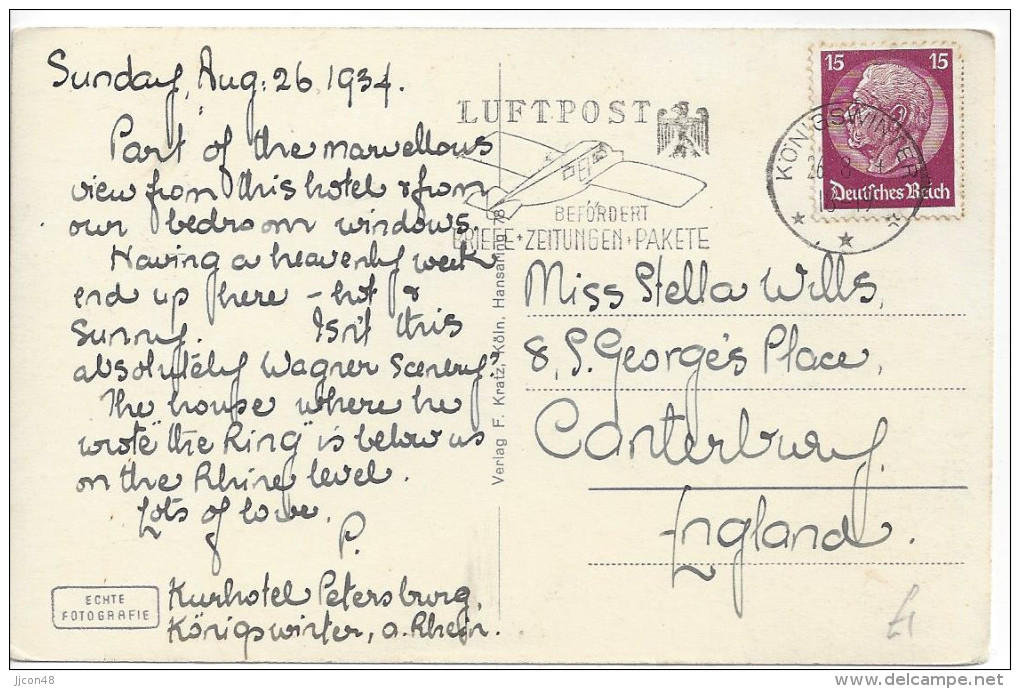 Sunday, Aug: 26, 1934.
Part of the marvellous
view from this hotel & from
our bedroom windows.
Having a heavenly week
end up here – hot &
sunny. Isn't this
absolutely Wagner Scenery?
The house where he
wrote "the Ring" is below us
on the Rhine level.
Lots of love.
P.
Kurhotel Petersburg,
Königswinter, a. Rhein.
ECHTE
FOTOGRAFIE
Verlag F. Kratz, Köln, Hansaring 78
LUFTPOST
BEFÖRDERT
BRIEFE+ZEITUNGEN+PAKETE
15 15
Deutsches Reich
KÖNIGSWINTER
26 8
Miss Stella Wills,
8, S. George's Place,
Canterbury.
England.
£1
jjcon48
www.delcampe.net